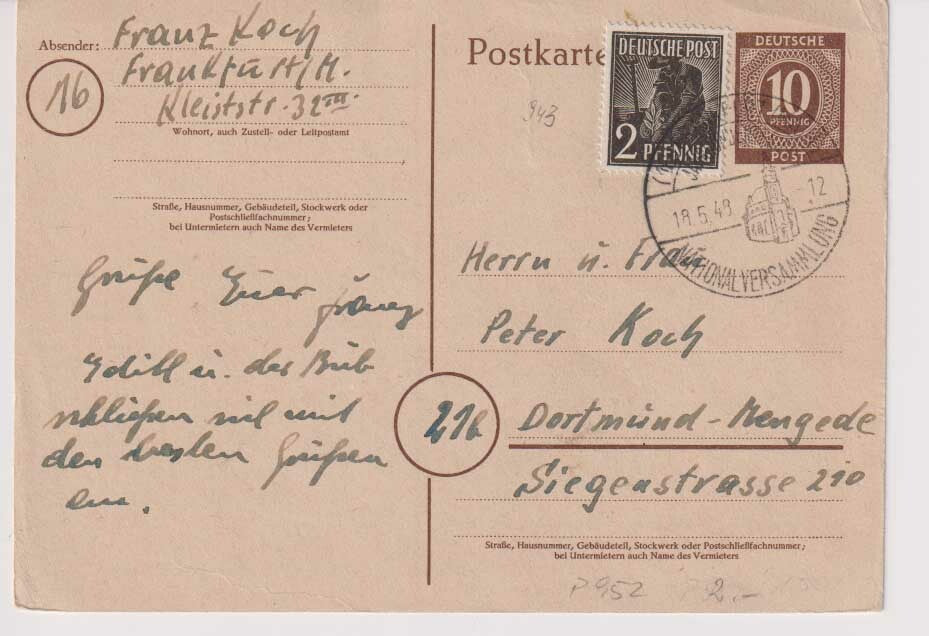 Absender: Franz Koch
Frankfurt/M.
16
Kleiststr. 32 III.
Wohnort, auch Zustell- oder Leitpostamt
Straße, Hausnummer, Gebäudeteil, Stockwerk oder
Postschließfachnummer;
bei Untermietern auch Name des Vermieters
Grüße Euer Franz
Edith u. der Bub
schließen sich mit
den besten Grüßen
an.
Postkarte
943
DEUTSCHE POST
2 PFENNIG
DEUTSCHE
10
PFENNIG
POST
18.5.48 -12
NATIONALVERSAMMLUNG
Herrn u. Frau
Peter Koch
21b
Dortmund-Mengede
Siegenstrasse 210
Straße, Hausnummer, Gebäudeteil, Stockwerk oder Postschließfachnummer;
bei Untermietern auch Name des Vermieters
P 952 2.-